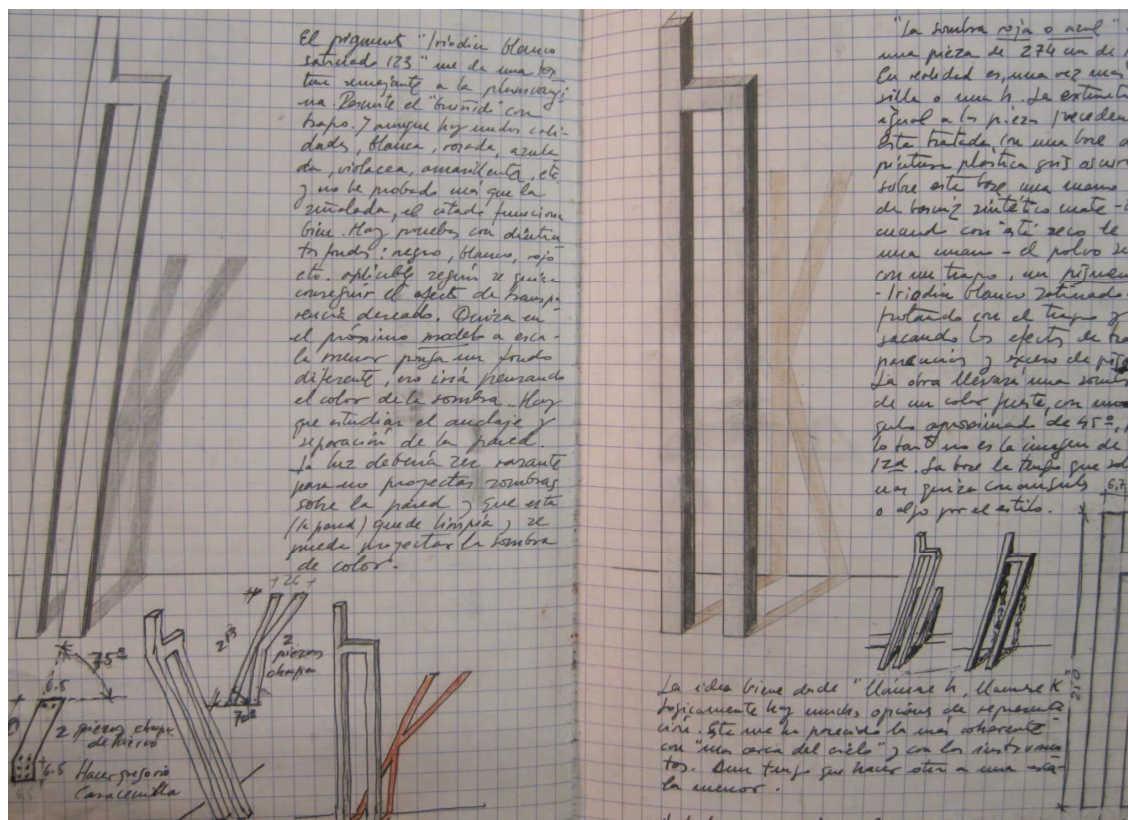 El pigment "Iriodin blanco
satinado 123" me da una tex
tura semejante a la plumvagi
na Permite el "bruñido" con
trapo. Y aunque hay muchas cali-
dades, blanca, rosada, azula
da, violacea, amarillenta, etc
y no he probado más que la
señalada, el citado funciona
bien. Hay pruebas con distin
tos fondos: negro, blanco, rojo
etc. aplicable según se quiera
conseguir el efecto de transpa
rencia deseado. Quiza en
el próximo modelo a esca-
la menor ponga un fondo
diferente, eso iria pensando
el color de la sombra. Hay
que estudiar el anclaje y
separación de la pared.
La luz debería ser rasante
para no proyectar sombras
sobre la pared y que esta
(la pared) quede limpia y se
pueda proyectar la sombra
de color.
+26+
2
piezas
chapa
70º
75º
6.5
2 piezas chapa
de hierro
6.5 Hacer gregorio
"La sombra roja o azul"
una pieza de 274 cm de
En realidad es, una vez más
silla o una h. La
igual a las piezas preceden
Esta tratada con una base
pintura plástica gris oscuro
sobre esta base una mano
de barniz sintético mate
cuando está seco le
una mano - el polvo se
con un trapo, un pigmen
- Iriodin blanco satinado
frotando con el trapo y
sacando los efectos de tra
parencias y exceso de
La obra llevará una sombra
de un color fuerte, con un
gulo aproximado de 45º,
lo tanto no es la imagen de
La base la tengo que
quiza con angulo
o algo por el estilo.
6,7
210
La idea viene desde "Llámame h, llámame K"
Logicamente hay muchas opciones de representa
ción. Este me ha parecido la más coherente
con "mas cerca del cielo" y con los instrumen
tos. Aun tengo que hacer otra a una esca-
la menor.